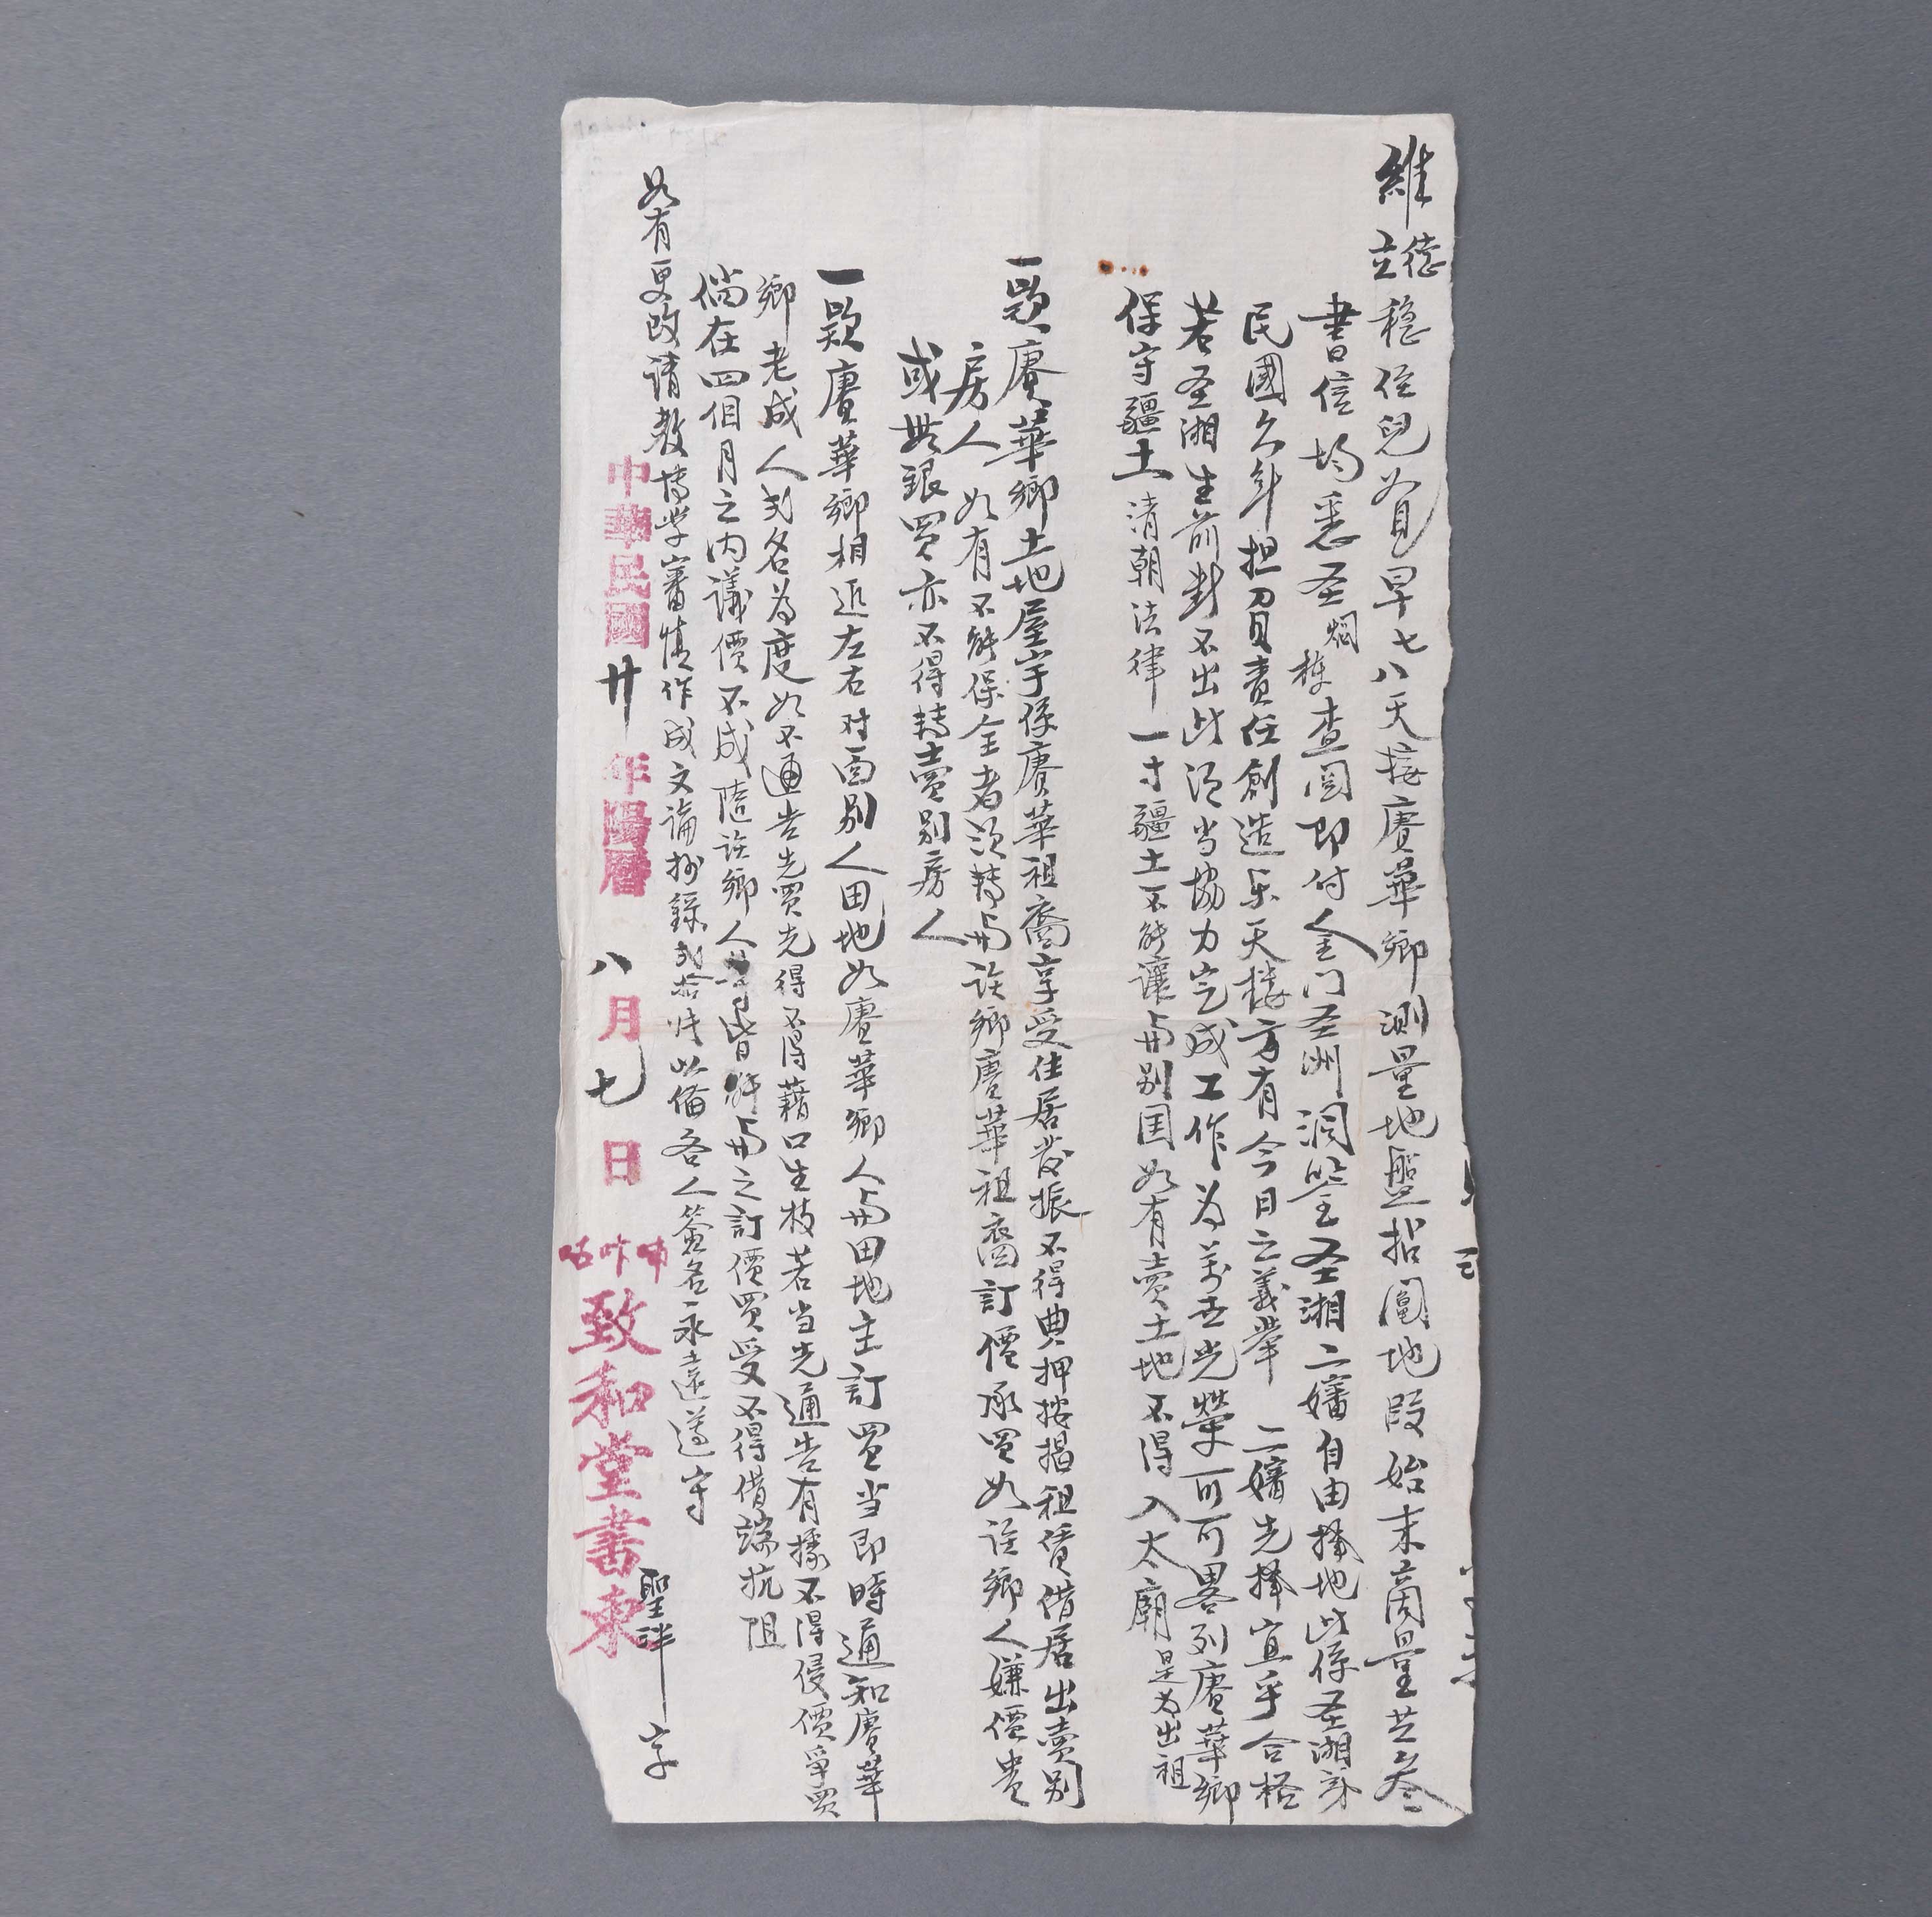 維德立穩侄兒收見早七八天接賡華鄉測量地盤招圍地段始末簡量共叁
書信均悉圣炯栋查閱即付金门圣洲洞鉴圣湘二嬸自由擇地此係圣湘身
民國久年担負責任創造乐天楼方有今日之義舉二嬸先擇宜乎合格
若圣湘生前對不出此须当協力完成工作为萬世光榮可可畧列賡華鄉
保守疆土清朝法律一寸疆土不能讓與别国如有賣土地不得入太廟是为出祖
一款賡華鄉土地屋宇係賡華祖裔享受住居發振不得典押按揭租賃借居出賣别
房人如有不能保全者须转與該鄉賡華祖裔訂價承買如該鄉人嫌價贵
或無銀買亦不得转賣别房人
一款賡華鄉相近左右对面别人田地如賡華鄉人與田地主訂買当即時通知賡華
鄉老成人弍名為度如不通告先買先得不得藉口生枝若当先通告有據不得侵價爭買
倘在四個月之内議價不成隨該鄉人等皆能與之訂價買受不得借端抗阻
如有更改请教博学審慎作成文論抄錄弍拾張以備各人簽名永遠遵守
聖洋 字
中華民國廿年陽曆八月七日
致和堂書柬